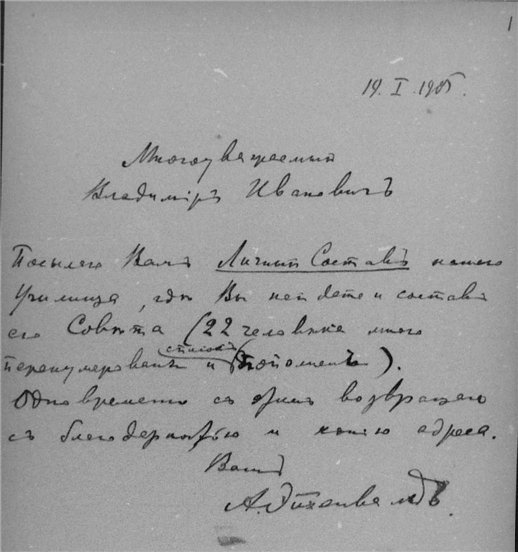 1
19. I. 1905.
Многоуважаемый
Владиміръ Ивановичъ
Посылаю Вамъ Личный Составъ нашего
Училища, гдѣ Вы найдете и составъ
его Совѣта (22 человѣка мною
перенумерованы и списокъ пополненъ).
Одновременно съ этимъ возвращаю
съ благодарностью и копію адреса.
Вашъ
А. Эйхенвальдъ.